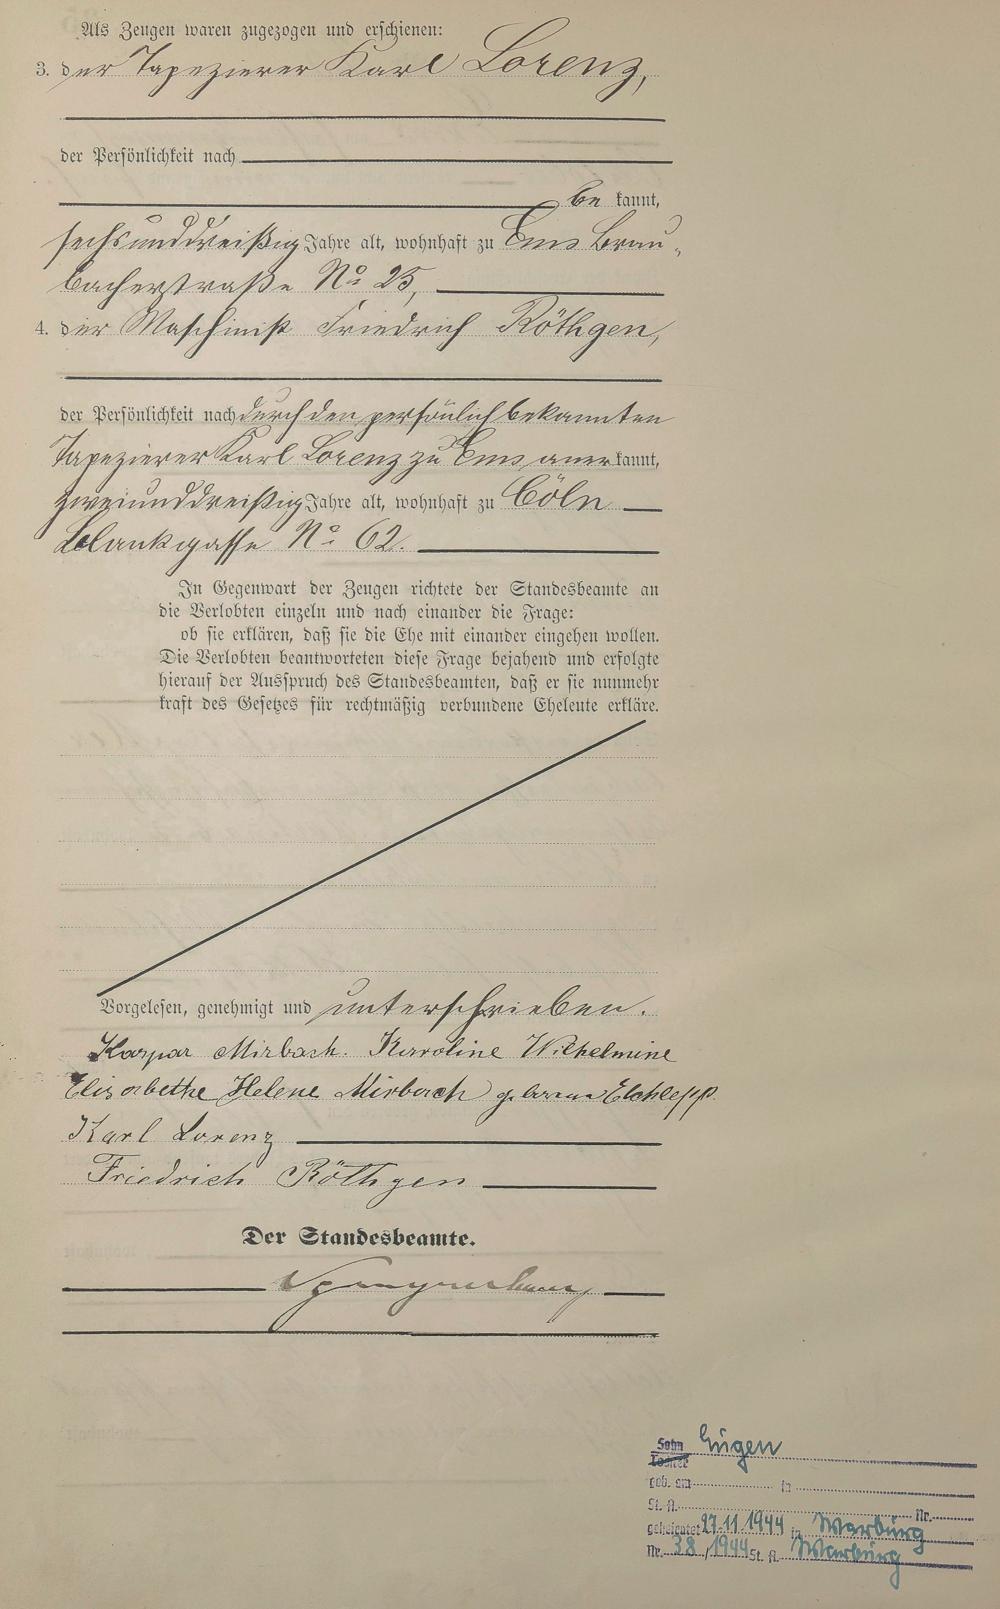 Als Zeugen waren zugezogen und erschienen:
3. der Tapezierer Karl Lorenz,
der Persönlichkeit nach
be kannt,
sechsunddreißig Jahre alt, wohnhaft zu Ems Brau-
bacherstraße No 25,
4. der Maschinist Friedrich Röthgen,
der Persönlichkeit nach durch den persönlich bekannten
Tapezierer Karl Lorenz zu Ems aner kannt,
zweiunddreißig Jahre alt, wohnhaft zu Cöln
Blankgasse No 62.
In Gegenwart der Zeugen richtete der Standesbeamte an
die Verlobten einzeln und nach einander die Frage:
ob sie erklären, daß sie die Ehe mit einander eingehen wollen.
Die Verlobten beantworteten diese Frage bejahend und erfolgte
hierauf der Ausspruch des Standesbeamten, daß er sie nunmehr
kraft des Gesetzes für rechtmäßig verbundene Eheleute erkläre.
Vorgelesen, genehmigt und unterschrieben.
Kaspar Mirbach. Karoline Wilhelmine
Elisabethe Helene Mirbach geborene
Karl Lorenz
Friedrich Röthgen
Der Standesbeamte.
Sohn Eugen
Tochter
geb. am in
St. A. Nr.
geheiratet 27.11.1944 in Warburg
Nr. 38/1944 St. A. Warburg